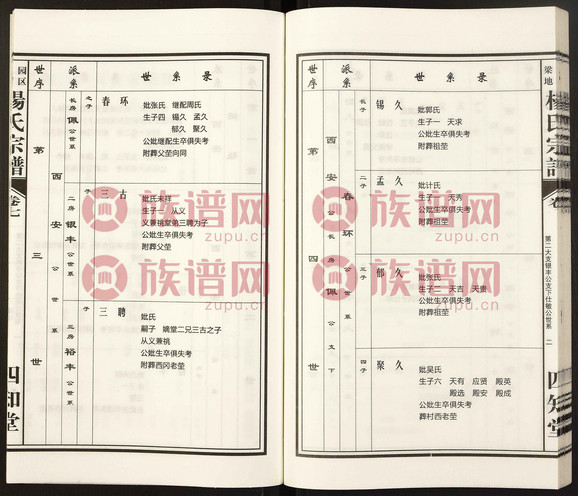 园区
杨氏宗谱
卷七
四知堂
世序
派系
世系录
第三世
西安
长房佩公世系
之子
春环
妣张氏 继配周氏
生子四 锡久 孟久
郁久 聚久
公妣继配生卒俱失考
附葬父茔向同
二房银丰公世系
子
三古
妣氏未祥
生子一 从义
义兼祧堂弟三聘为子
公妣生卒俱失考
附葬父茔
三房裕丰公世系
子
三聘
妣氏
嗣子 嫡堂二兄三古之子
从义兼祧
公妣生卒俱失考
附葬西冈老茔
世序
派系
世系录
第四世
西安公长房佩公支下
春环
长子
锡久
妣郭氏
生子一 天求
公妣生卒俱失考
附葬祖茔
二子
孟久
妣计氏
生子一 天秀
公妣生卒俱失考
附葬祖茔
三子
郁久
妣张氏
生子二 天吉 天贵
公妣生卒俱失考
附葬祖茔
四子
聚久
妣吴氏
生子六 天有 应贤 殿英
殿选 殿安 殿成
公妣生卒俱失考
葬村西老茔
梁地
杨氏宗谱
卷
第二大支银丰公支下仕敏公世系 二
四知堂
族谱网
zupu.cn
族谱网
zupu.cn
族谱网
zupu.cn
族谱网
zupu.cn